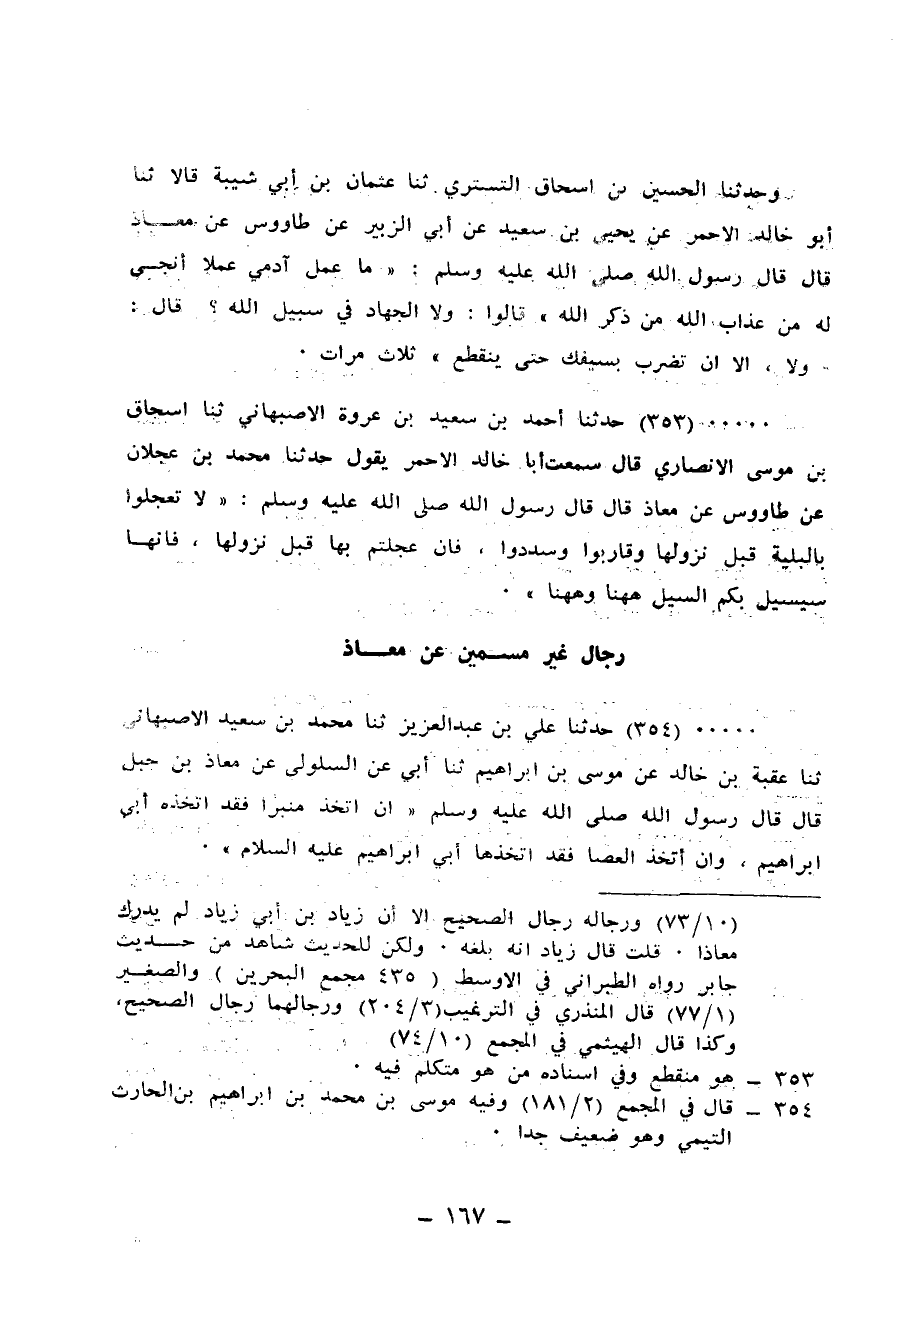 وحدثنا الحسين بن اسحاق التستري ثنا عثمان بن أبي شيبة قالا ثنا
أبو خالد الاحمر عن يحيى بن سعيد عن أبي الزبير عن طاووس عن معـــاذ
قال قال رسول الله صلى الله عليه وسلم : « ما عمل آدمي عملا أنجـى
له من عذاب الله من ذكر الله » قالوا : ولا الجهاد في سبيل الله ؟ قال :
ولا ، الا ان تضرب بسيفك حتى ينقطع » ثلاث مرات ٠
٠٠٠٠٠ (٣٥٣) حدثنا أحمد بن سعيد بن عروة الاصبهاني ثنا اسحاق
بن موسى الانصاري قال سمعت أبا خالد الاحمر يقول حدثنا محمد بن عجلان
عن طاووس عن معاذ قال قال رسول الله صلى الله عليه وسلم : « لا تعجلوا
بالبلية قبل نزولها وقاربوا وسددوا ، فان عجلتم بها قبل نزولها ، فانهـا
سيسيل بكم السيل ههنا وههنا » ٠
رجال غير مسـمين عن معـــاذ
٠٠٠٠٠ (٣٥٤) حدثنا علي بن عبدالعزيز ثنا محمد بن سعيد الاصبهاني
ثنا عقبة بن خالد عن موسى بن ابراهيم ثنا أبي عن السلولى عن معاذ بن جبل
قال قال رسول الله صلى الله عليه وسلم « ان اتخذ منبرا فقد اتخذه أبي
ابراهيم ، وان أتخذ العصا فقد اتخذها أبي ابراهيم عليه السلام » ٠
(٧٣/١٠) ورجاله رجال الصحيح الا أن زياد بن أبي زياد لم يدرك
معاذا ٠ قلت قال زياد انه بلغه ٠ ولكن للحديث شاهد من حـــديث
جابر رواه الطبراني في الاوسط ( ٤٣٥ مجمع البحرين ) والصغـير
(٧٧/١) قال المنذري في الترغيب(٢٠٤/٣) ورجالهما رجال الصحيح،
وكذا قال الهيثمي في المجمع (٧٤/١٠)
٣٥٣ ـ هو منقطع وفي اسناده من هو متكلم فيه ٠
٣٥٤ ـ قال في المجمع (١٨١/٢) وفيه موسى بن محمد بن ابراهيم بن الحارث
التيمي وهو ضعيف جدا ٠
ـ ١٦٧ ـ